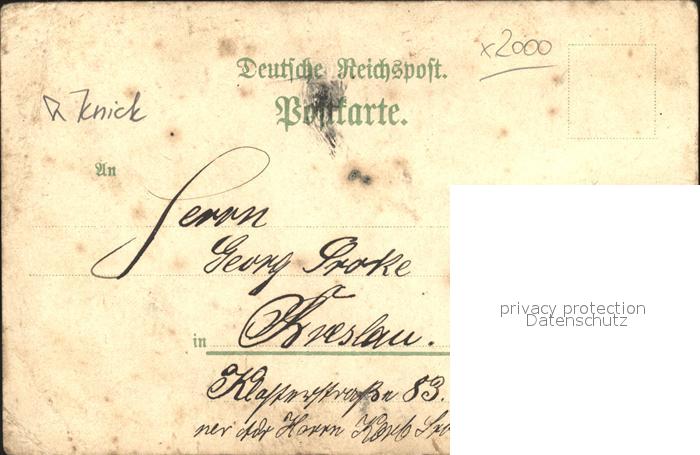 Deutsche Reichspost.
Postkarte.
x2000
Knick
An
Herrn
Georg Proke
in Breslau.
Klosterstraße 83.
Herrn
privacy protection
Datenschutz